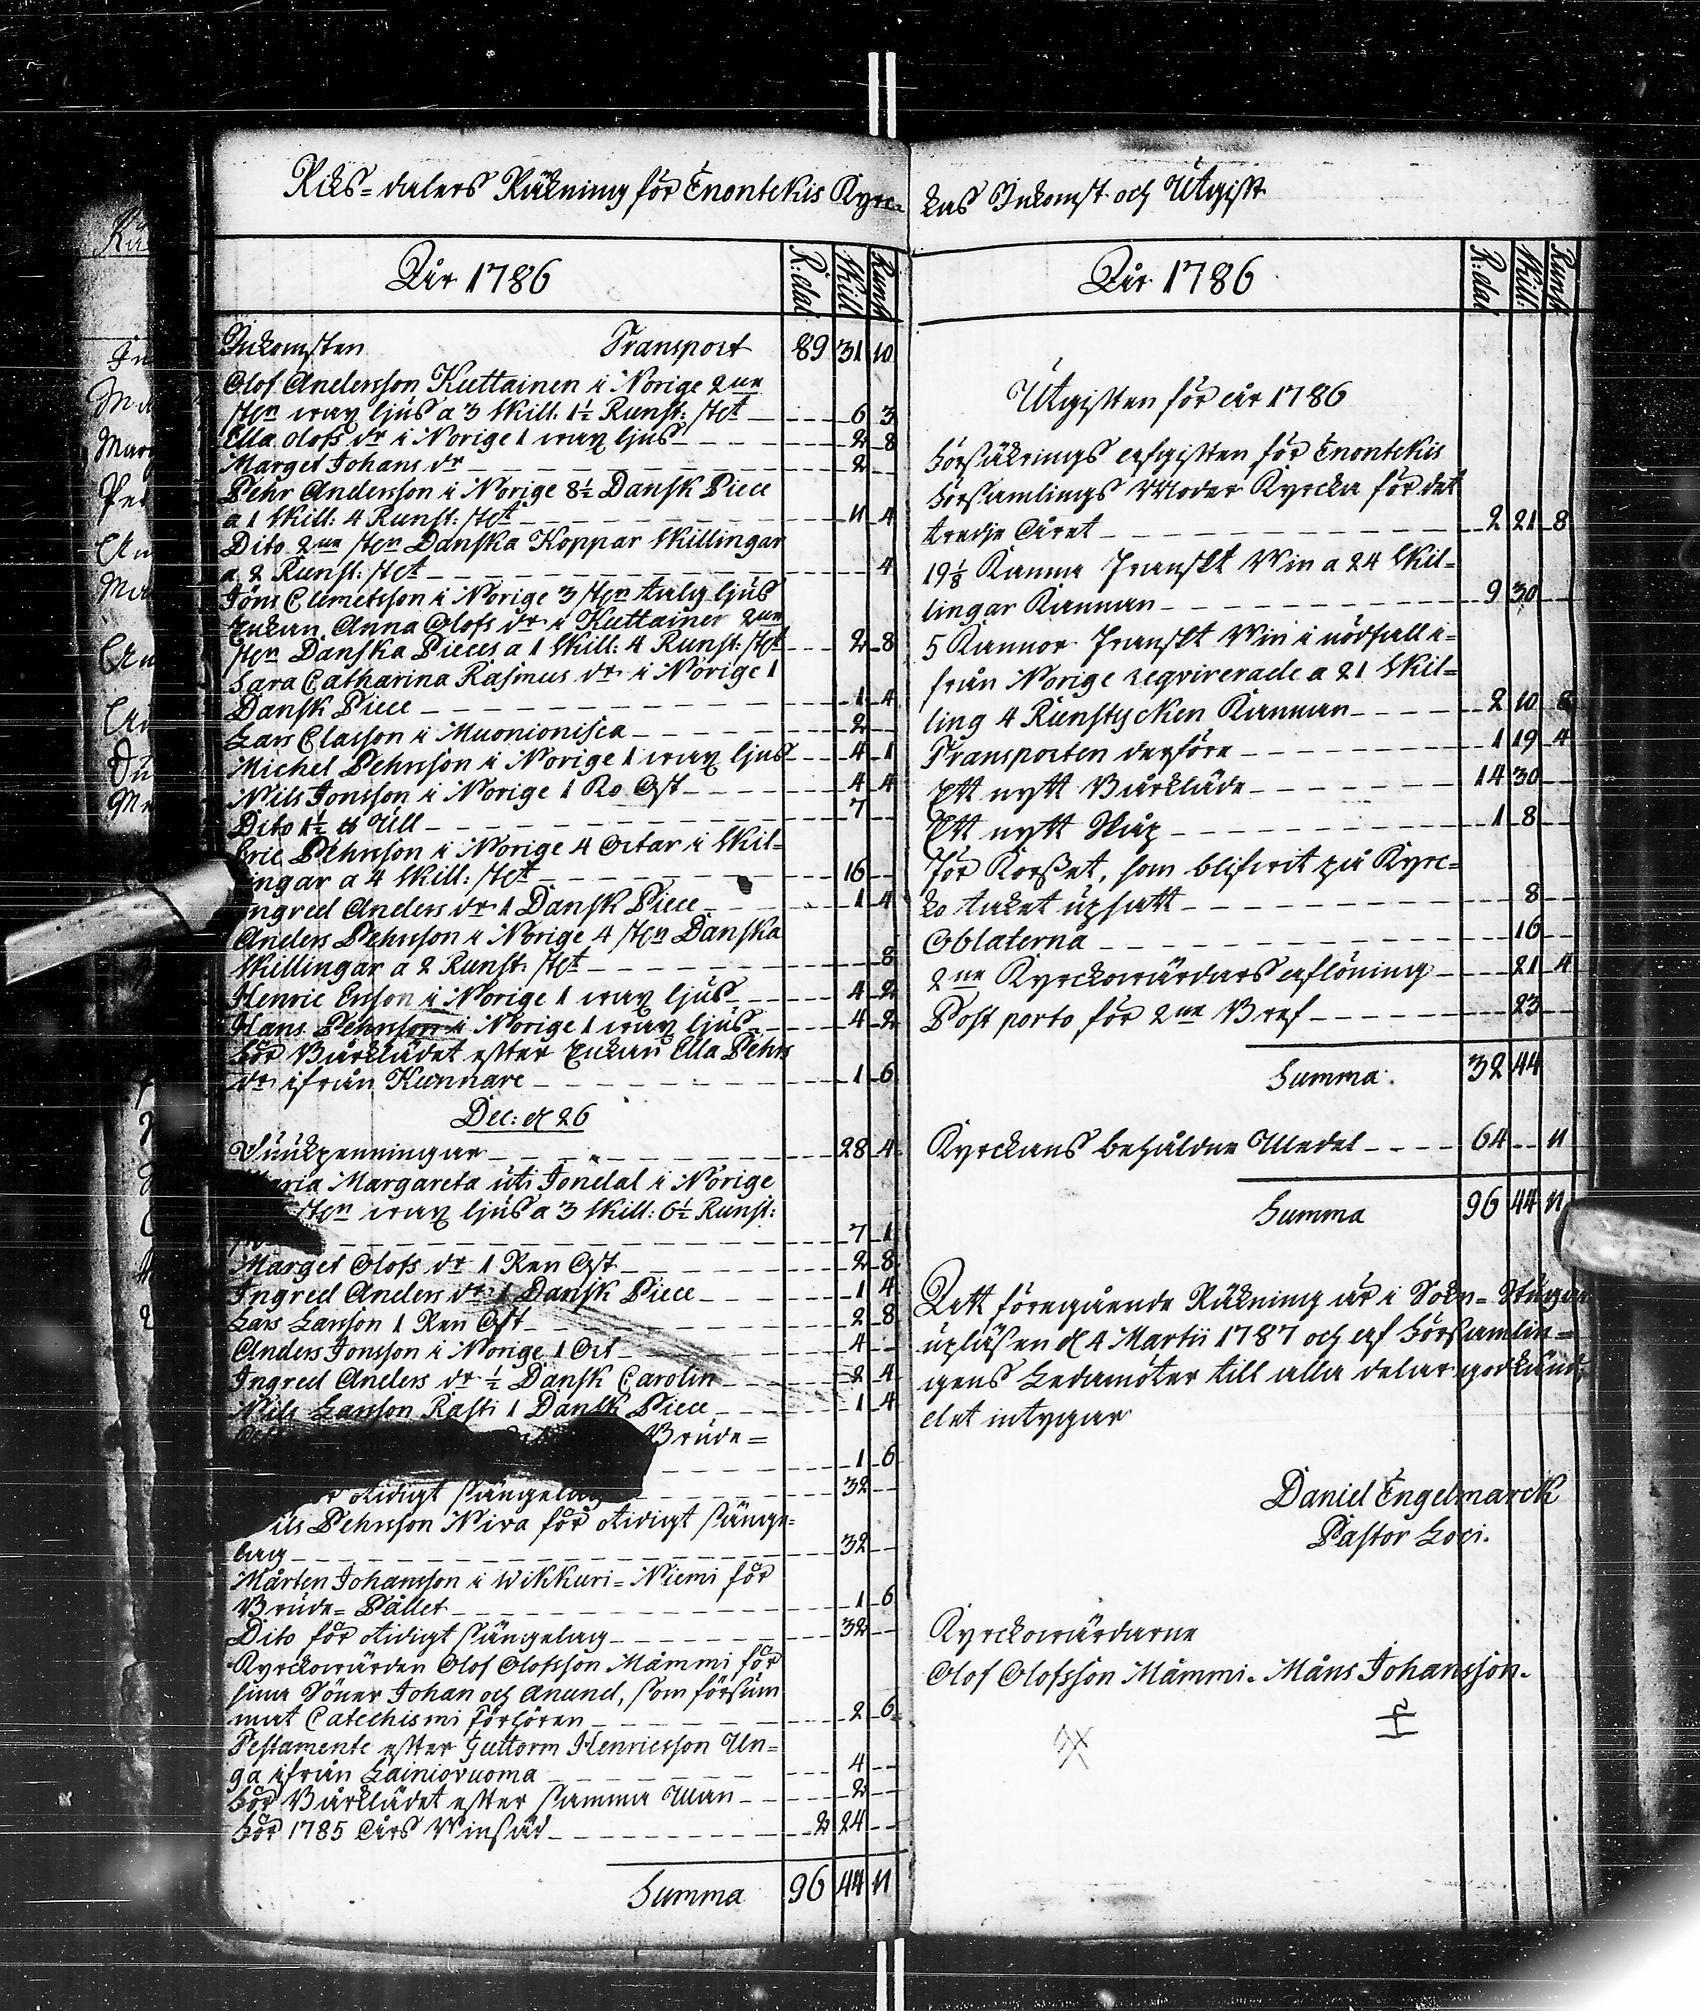 Riks-dalers Räkning för Enontekis Kyrc-
År 1786 R:dal Skill Runst
Inkomsten Transport 89 31 10
Olof Andersson Kuttainen i Norige 2ne
st:n wax ljus a 3 Skill. 1½ Runst: st:t 6 3
Ella Olofs dr i Norige 1 wax ljus 2 8
Marget Johans dr 2
Pehr Andersson i Norige 8½ Dansk Piece
a 1 Skill: 4 Runst: st:t 11 4
Dito 2ne st:n Danska Koppar Skillingar
a 2 Runst: st:t 4
Jöns Clemetsson i Norige 3 st:n talg ljus
Enkan Anna Olofs dr i Kuttainen 2ne
st:n Danska Pieces a 1 Skill: 4 Runst: st:t 2 8
Sara Catharina Rasmus dr i Norige 1
Dansk Piece 1 4
Lars Classon i Muonionisca 2
Michel Pehrsson i Norige 1 wax ljus 4 1
Nils Jonsson i Norige 1 Ko Ost 4 4
Dito 1½ ℔ Ull 7
Eric Pehrsson i Norige 4 Ortar i Skil-
lingar a 4 Skill: st:t 16
Ingred Anders dr 1 Dansk Piece 1 4
Anders Pehrsson i Norige 4 st:n Danska
Skillingar a 2 Runst: st:t 8
Henric Ersson i Norige 1 wax ljus 4 2
Hans Pehrsson i Norige 1 wax ljus 4 2
För Bårklädet efter Enkan Ella Pehrs
dr ifrån Kunnare 1 6
Dec: d 26
Sünkpenningar 28 4
Maria Margareta uti Jondal i Norige
st:n wax ljus a 3 Skill: 6½ Runst:
7 1
Marget Olofs dr 1 Ren Ost 2 8
Ingred Anders dr 1 Dansk Piece 1 4
Lars Larsson 1 Ren Ost 2 8
Anders Jonsson i Norige 1 Ort 4
Ingred Anders dr ½ Dansk Carolin 2 4
Nils Larsson Rasti 1 Dansk Piece 1 4
Brude-
1 6
otidigt sängelag 32
Nils Pehrsson Niva för otidigt sänge-
lag 32
Mårten Johansson i Wikkuri-Niemi för
Brude-Pallet 1 6
Dito för otidigt sängelag 32
Kyrckowärden Olof Olofsson Mämmi för
sina Söner Johan och Anund, som försum
mat Catechismi förhören 2 6
Testamente efter Guttorm Henricsson Un-
ga ifrån Lainiovuoma 4
För Bårklädet efter samma Man 2
För 1785 Års Winsäd 2 24
Summa 96 44 11
kas Inkomst och Utgift
År 1786 R:dal Skill: Runst
Utgiften för år 1786
Försäkrings afgiften för Enontekis
Församlings Moder Kyrcka för det
tredje Året 2 21 8
19⅛ Kanna Franskt Win a 24 Skil-
lingar Kannan 9 30
5 Kannor Franskt Win i nödfall i-
från Norige reqvirerade a 21 Skil-
ling 4 Runstycken Kannan 2 10 8
Transporten derföre 1 19 4
Ett nytt Bårkläde 14 30
Ett nytt Skåp 1 8
För Korßet, som blifwit på Kyrc-
ko taket upsatt 8
Oblaterna 16
2ne Kyrckowärdars aflöning 21 4
Post porto för 2ne Bref 23
Summa 32 44
Kyrckans behåldne Medel 64 11
Summa 96 44 11
Att föregående Räkning är i Sokn-Stugan
upläsen d 4 Martii 1787 och af Församlin-
gens Ledamöter till alla delar godkänd,
det intygar
Daniel Engelmarck
Pastor Loci.
Kyrckowärdarne
Olof Olofsson Mämmi. Måns Johansson.